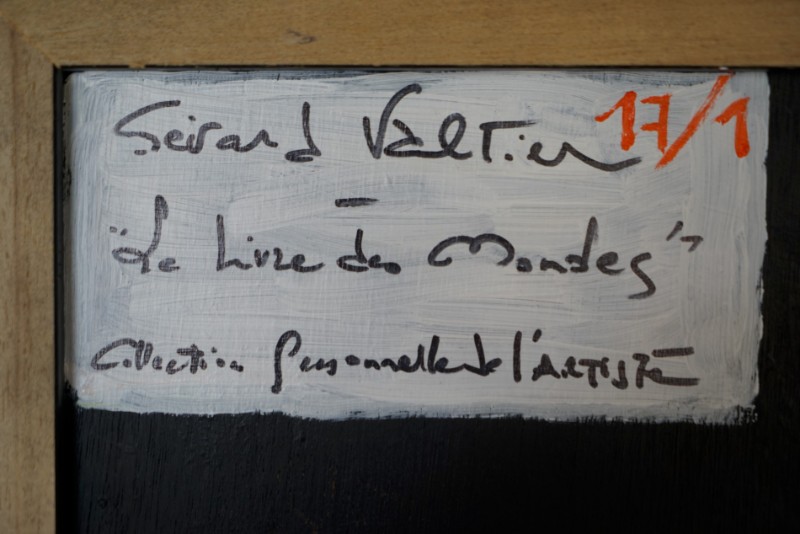 Gérard Valtier 17/1
-
"Le Livre des Mondes"
Collection Personnelle de l'ARTISTE